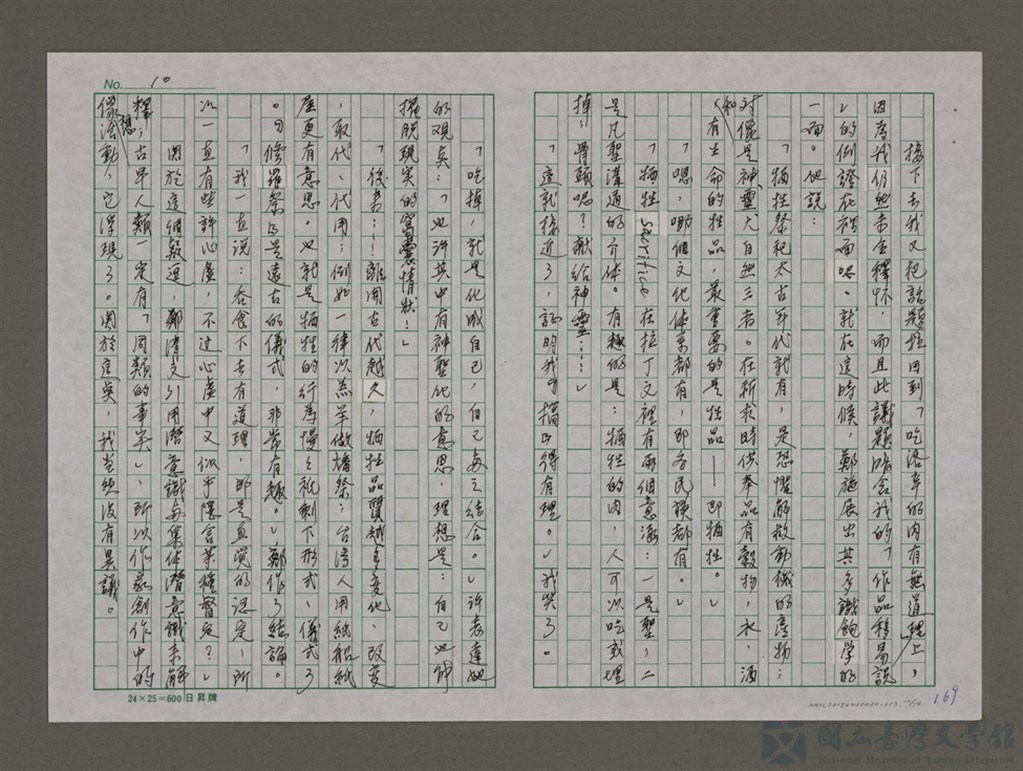 No. 10
接下去我又把話題拉回到「吃洛辛的肉有無道理」上，
因為我仍然未全釋怀，而且此議題隱含我的「作品移易說
」的例證在裡面吶。就在這時候，鄭施展出其多識飽學的
一面。他說：
「牺牲祭祀太古年代就有，是恐惧解救动機的產物；
对儀是神、靈、大自然三者。在祈求時供奉品有穀物，水，酒
和有生命的牲品，最重要的是牲品——即牺牲。
「嗯，哪個文化体系都有，即各民族都有。」
「牺牲 Sacrifice 在拉丁文裡有兩個意涵：一是聖，二
是凡聖溝通的介体。有趣的是：牺牲的肉，人可以吃或埋
掉；骨頭呢？獻給神靈……」
「這就接近了，証明我的搞正得有理。」我笑了。
「吃掉，就是化成自己，自己与之结合。」許表達她
的观奌：「也许其中有神聖化的意思，理想是：自己也能
擺脫現実的窩囊情狀！」
「後者……離開古代越久，牺牲品質越會变化、改变
，取代、代用；例如一律以羔羊做燔祭；台湾人用紙船紙
屋更有意思。也就是牺牲的行為慢慢就剩下形式、儀式了
。勾修羅祭馬是遠古的儀式，非常有趣。」鄭作了結論。
「我一直说：吞食下去有道理，那是直覚的認定，所
以一直有些許心虛，不过心虛中又似乎隱含某種督定？」
関於這個疑迴，鄭清文引用潜意識与集体潜意識來解
釋；古早人類一定有「同類的事実」，所以作家創作中的
像活動，它浮現了。関於這奌，我当然沒有異議。
想
24×25=600 日昇牌
169
國立臺灣文學館
National Museum of Taiwan Literature